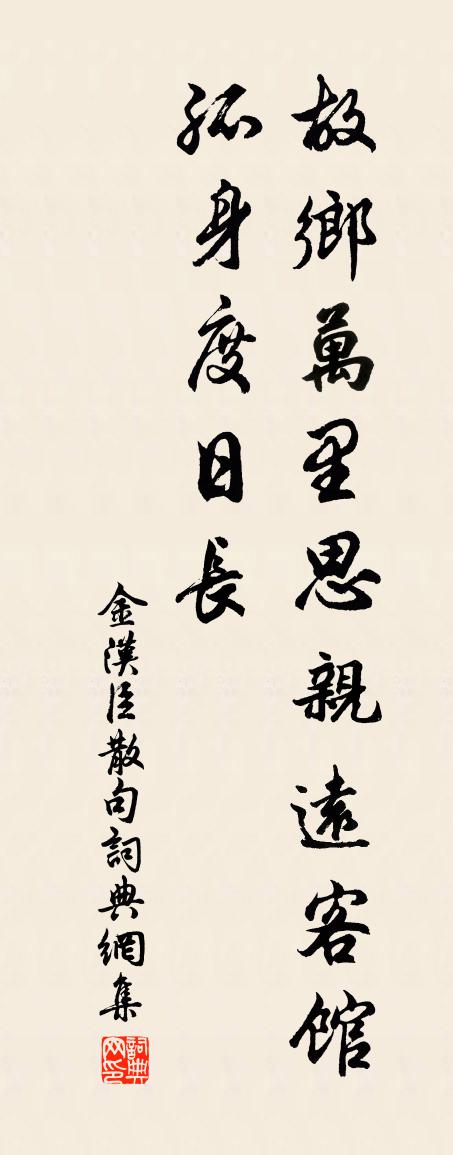 故鄉萬里思親遠客館
孤身度日長
金漢臣散句詞典網集
詞典网印